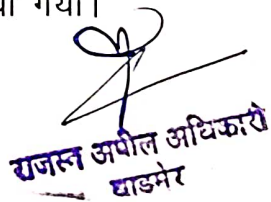 गया।
राजस्व अपील अधिकारी
बाडमेर